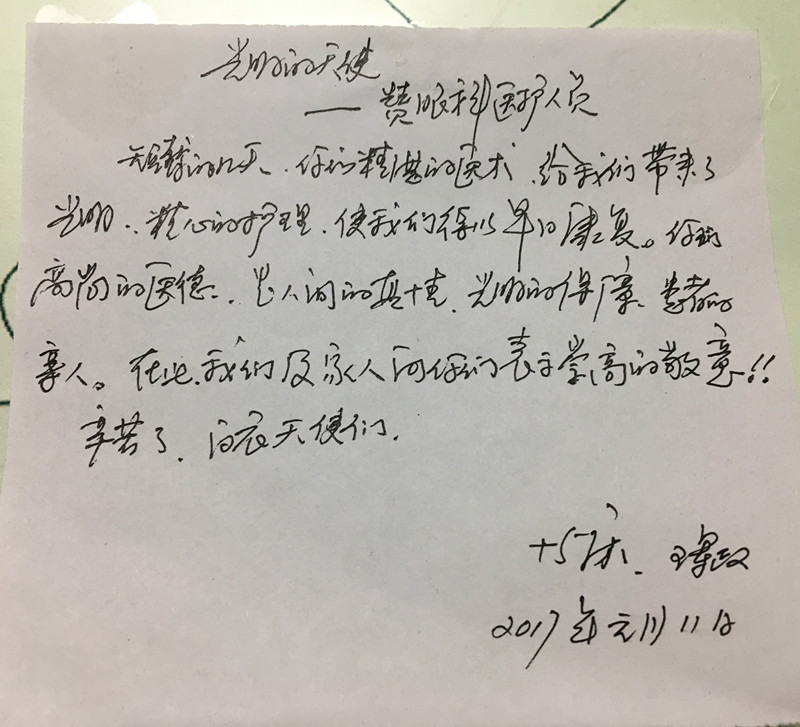 光明的天使
——赞眼科医护人员
短暂的几天、你们精湛的医术、给我们带来了
光明、精心的护理、使我们得以早日康复。你们
高尚的医德、是人间的真情、光明的保障、患者的
亲人。在此、我们及家人向你们表示崇高的敬意!!
辛苦了、白衣天使们.
+5床、
2017年元月11日